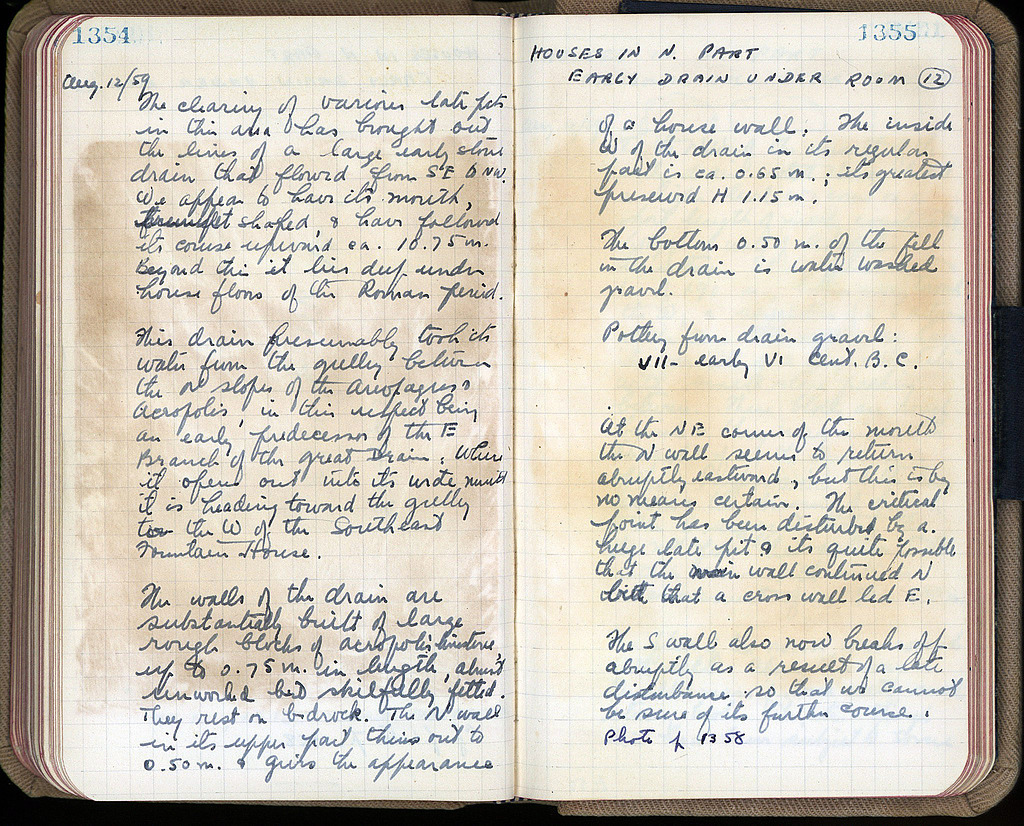 1354
Aug. 12/59
The clearing of various late pits
in this area has brought out
the lines of a large early stone
drain that flowed from SE to NW.
We appear to have its mouth,
trumpet shaped, & have followed
its course upward ca. 10.75 m.
Beyond this it lies deep under
house floors of the Roman period.
This drain presumably took its
water from the gulley between
the slopes of the Areopagus &
Acropolis, in this respect being
an early predecessor of the E
Branch of the Great Drain. Where
it opens out into its wide mouth
it is heading toward the gulley
to the W of the Southeast
Fountain House.
The walls of the drain are
substantially built of large
rough blocks of acropolis limestone
up to 0.75 m. in length, almost
unworked but skilfully fitted.
They rest on bedrock. The N wall
in its upper part thins out to
0.50 m. & gives the appearance
1355
HOUSES IN N. PART
EARLY DRAIN UNDER ROOM 12
of a house wall. The inside
W of the drain in its regular
part is ca. 0.65 m.; its greatest
preserved H 1.15 m.
The bottom 0.50 m. of the fill
in the drain is water washed
gravel.
Pottery from drain gravel:
VII - early VI cent. B.C.
At the NE corner of the mouth
the N wall seems to return
abruptly eastward, but this is by
no means certain. The critical
point has been disturbed by a
huge late pit & its quite possible
that the main wall continued N
but that a cross wall led E.
The S wall also now breaks off
abruptly as a result of a late
disturbance so that we cannot
be sure of its further course.
Photo p 1358